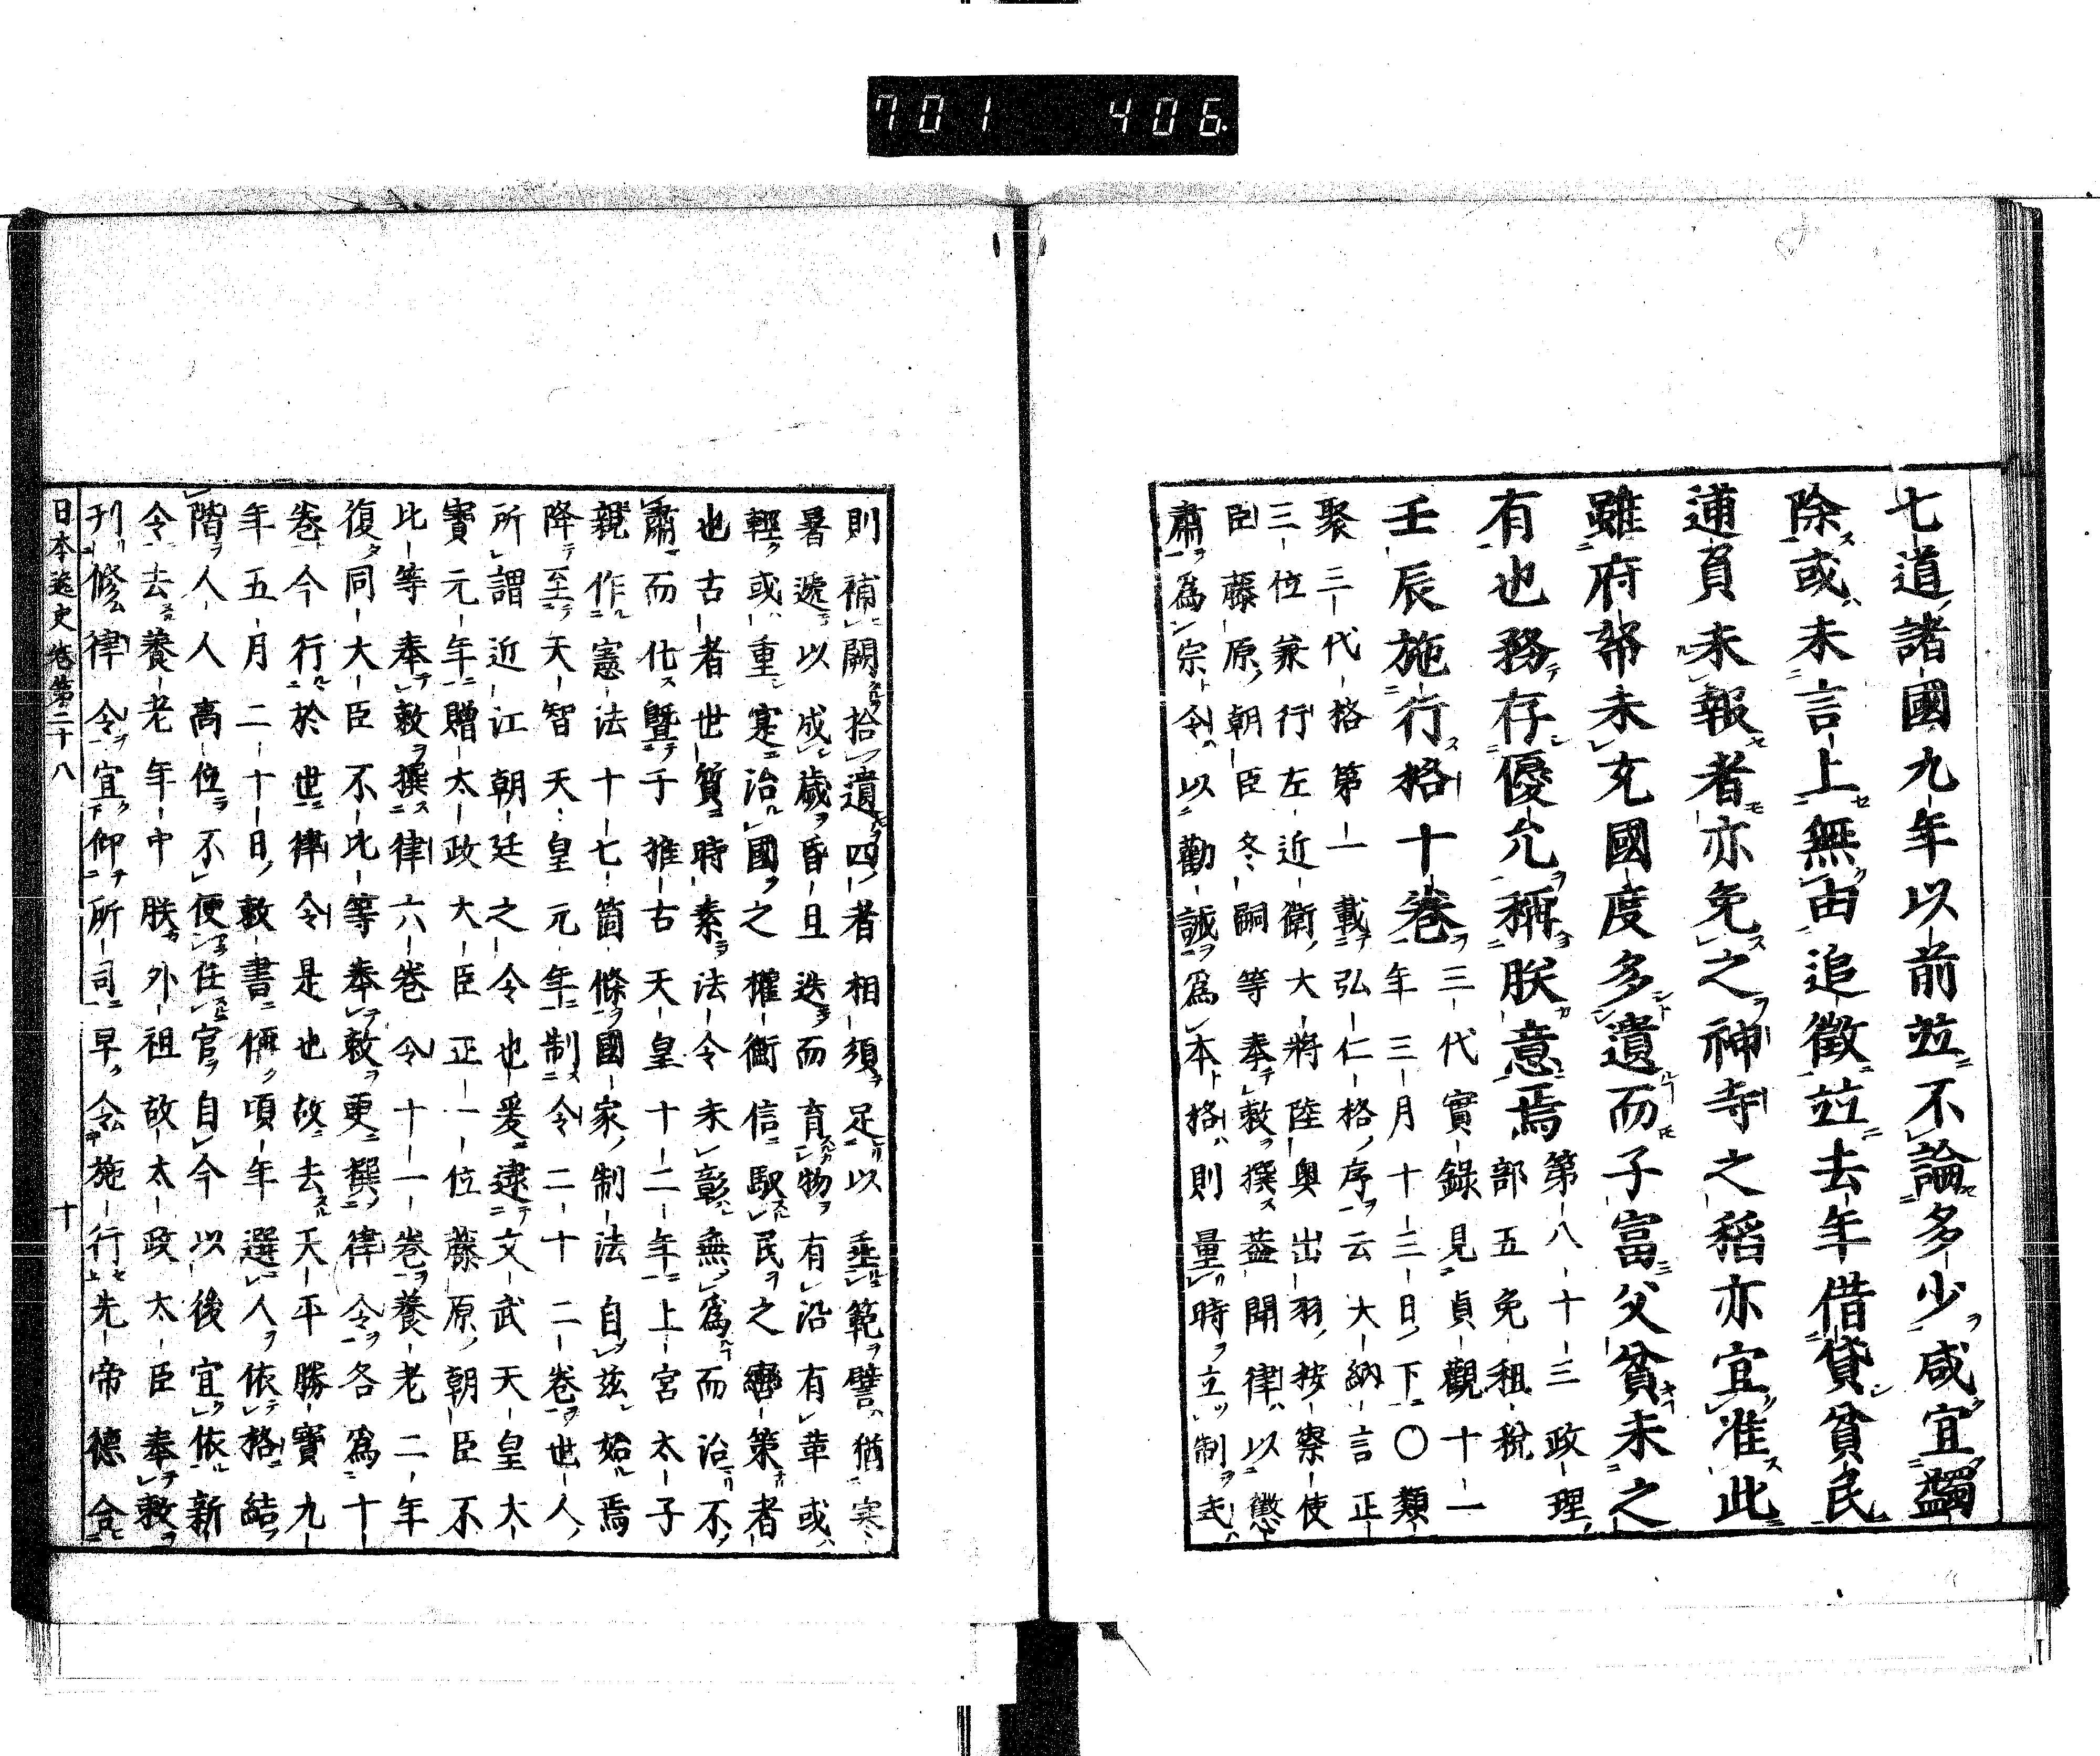 701 406
七道諸國九年以前竝不論多少咸宜蠲
除或未言上無由追徵竝去年借貸貧民
逋負未報者亦免之神寺之稻亦宜准此
雖府帑未充國度多遺而子富父貧未之
有也務存優允稱朕意焉 第八十三政理
部五免租稅
壬辰施行格十卷 三代實錄見貞觀十一
年三月十三日下〇類
聚三代格第一載弘仁格序云大納言正
三位兼行左近衛大將陸奧出羽按察使
臣藤原朝臣冬嗣等奉敕撰蓋聞律以懲
肅爲宗令以勸誡爲本格則量時立制式
則補闕拾遺四者相須足以垂範譬猶寒
暑遞以成歲昏旦迭而育物有沿有革或
輕或重寔治國之權衡信馭民之轡策者
也古者世質時素法令未彰無爲而治不
肅而化曁于推古天皇十二年上宮太子
親作憲法十七箇條國家制法自茲始焉
降至天智天皇元年制令二十二卷世人
所謂近江朝廷之令也爰逮文武天皇大
寶元年贈太政大臣正一位藤原朝臣不
比等奉敕撰律六卷令十一卷養老二年
復同大臣不比等奉敕更撰律令各爲十
卷今行於世律令是也故去天平勝寶九
年五月二十日敕書偁頃年選人依格結
階人人高位不便任官自今以後宜依新
令去養老年中朕外祖故太政太臣奉敕
刊修律令宜仰所司早令施行先帝德合
日本逸史卷第二十八 十